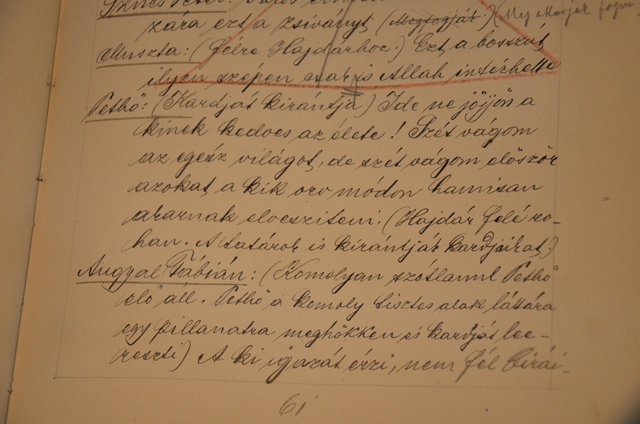 zára ezt a zsiványt. (Megfogják.) (Meg akarják fogni
Muszta: (félre Hajdárhoz.) Ezt a bosszút
ilyen szépen csak is Allah intézhette
Pethő: (Kardját kirántja) Ide ne jöjjön a
kinek kedves az élete! Szét vágom
az egész világot, de szét vágom először
azokat, a kik orv módon hamisan
akarnak elveszíteni (Hajdár felé ro-
han. A tatárok is kirántják kardjaikat,)
Angyal Fábián: (Komolyan szótlanul Pethő
elő áll. Pethő a komoly tisztes alak láttára
egy pillanatra meghökken és kardját lee-
reszti) A ki igazát érzi, nem fél birái-
61